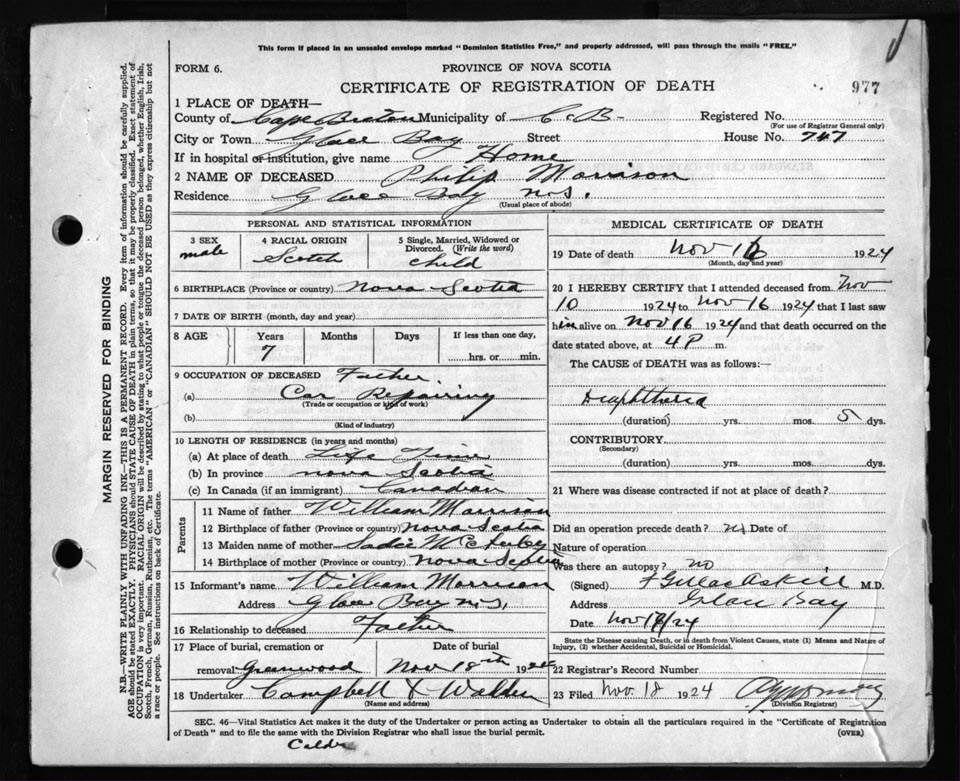 This form if placed in an unsealed envelope marked "Dominion Statistics Free," and properly addressed, will pass through the mails "FREE."
FORM 6.
PROVINCE OF NOVA SCOTIA
CERTIFICATE OF REGISTRATION OF DEATH
977
1 PLACE OF DEATH—
County of Cape Breton Municipality of C. B. Registered No.
(For use of Registrar General only)
City or Town Glace Bay Street House No. 747
If in hospital or institution, give name Home
2 NAME OF DECEASED Philip Morrison
Residence Glace Bay N.S.
(Usual place of abode)
PERSONAL AND STATISTICAL INFORMATION
3 SEX
male
4 RACIAL ORIGIN
Scotch
5 Single, Married, Widowed or Divorced. (Write the word)
child
6 BIRTHPLACE (Province or country) Nova Scotia
7 DATE OF BIRTH (month, day and year)
8 AGE Years Months Days If less than one day,
7 hrs. or min.
9 OCCUPATION OF DECEASED Father.
(a) Car Repairing
(Trade or occupation or kind of work)
(b)
(Kind of industry)
10 LENGTH OF RESIDENCE (in years and months)
(a) At place of death Life Time
(b) In province Nova Scotia
(c) In Canada (if an immigrant) Canadian
Parents
11 Name of father William Morrison
12 Birthplace of father (Province or country) Nova Scotia
13 Maiden name of mother Sadie
14 Birthplace of mother (Province or country) Nova Scotia
15 Informant's name William Morrison
Address Glace Bay N.S.
16 Relationship to deceased Father
17 Place of burial, cremation or removal Greenwood
Date of burial
Nov 18th 1924
18 Undertaker Campbell &
(Name and address)
MEDICAL CERTIFICATE OF DEATH
19 Date of death Nov 16 1924
(Month, day and year)
20 I HEREBY CERTIFY that I attended deceased from Nov
10 1924 to Nov 16 1924 that I last saw
him alive on Nov 16 1924 and that death occurred on
date stated above, at 4 P m.
The CAUSE of DEATH was as follows:—
Diaphtheria
(duration) yrs. mos. 5 dys.
CONTRIBUTORY
(Secondary)
(duration) yrs. mos. dys.
21 Where was disease contracted if not at place of death?
Did an operation precede death? no Date of
Nature of operation
Was there an autopsy? no
(Signed) M.D.
Address Glace Bay
Date Nov 18/24
State the Disease causing Death, or in death from Violent Causes, state (1) Means and Nature of
Injury, (2) whether Accidental, Suicidal or Homicidal.
22 Registrar's Record Number
23 Filed Nov. 18 1924
(Division Registrar)
SEC. 46—Vital Statistics Act makes it the duty of the Undertaker or person acting as Undertaker to obtain all the particulars required in the "Certificate of Registration
of Death" and to file the same with the Division Registrar who shall issue the burial permit. (OVER)
MARGIN RESERVED FOR BINDING
N.B.—WRITE PLAINLY WITH UNFADING INK—THIS IS A PERMANENT RECORD. Every item of information should be carefully supplied.
AGE should be stated EXACTLY. PHYSICIANS should STATE CAUSE OF DEATH in plain terms, so that it may be properly classified. Exact statement of
OCCUPATION is very important. RACIAL ORIGIN will be described by stating to what people or tongue the deceased person belonged, whether English, Irish,
Scotch, French, German, Russian, Ruthenian, etc. The terms "AMERICAN" or "CANADIAN" SHOULD NOT BE USED as they express citizenship but not
a race or people. See instructions on back of Certificate.